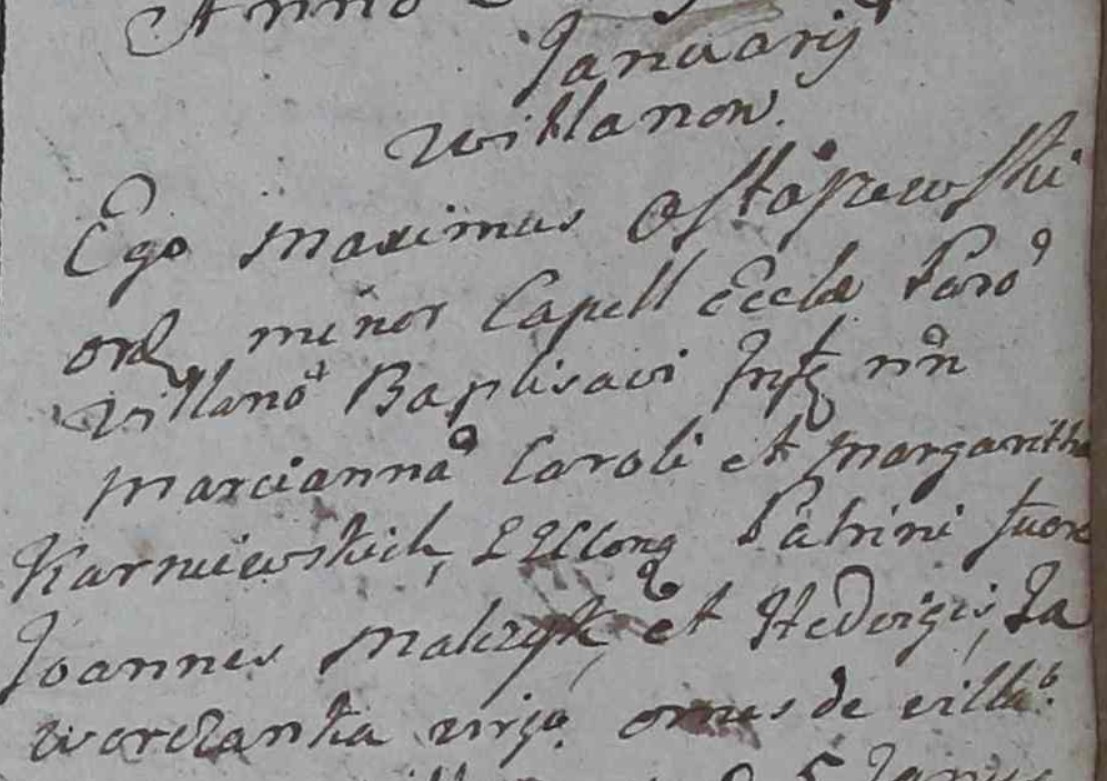 Anno
Januarij
Willanow.
Ego Maximus Ostapiewski
ord minor Capell Eccla Paro
Villano Baptisavi Inft nn
Mariannā Caroli et Margaritha
Karniewskich, LLCong Patrini fuere
Joannes Malczyk, et Hedvigis, Ja
worczanka virgo. omnes de villa.
Janua